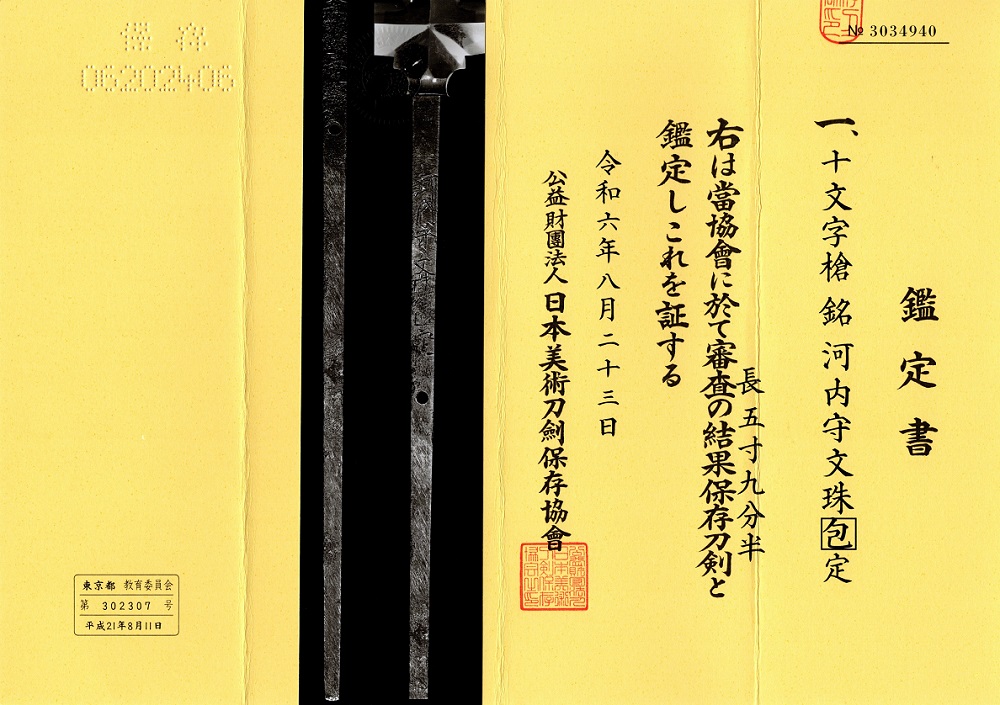 № 3034940
鑑定書
一、十文字槍 銘 河内守文珠包定
長五寸九分半
右は當協會に於て審査の結果保存刀剣と
鑑定しこれを証する
令和六年八月二十三日
公益財團法人 日本美術刀劍保存協會
保存
06202406
東京都 教育委員会
第 302307 号
平成21年8月11日